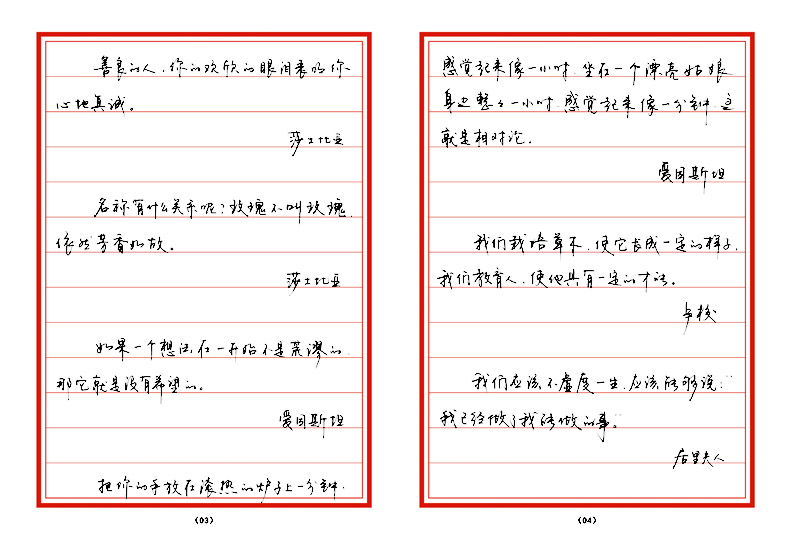 善良的人，你的欢欣的眼泪表明你
心地真诚。
莎士比亚
名称有什么关系呢？玫瑰不叫玫瑰，
依然芳香如故。
莎士比亚
如果一个想法在一开始不是荒谬的，
那它就是没有希望的。
爱因斯坦
把你的手放在滚热的炉子上一分钟，
(03)
感觉起来像一小时，坐在一个漂亮姑娘
身边整整一小时，感觉起来像一分钟，这
就是相对论。
爱因斯坦
我们栽培草木，使它长成一定的样子，
我们教育人，使他具有一定的才话。
卢梭
我们应该不虚度一生，应该能够说："
我已经做了我能做的事。"
居里夫人
(04)